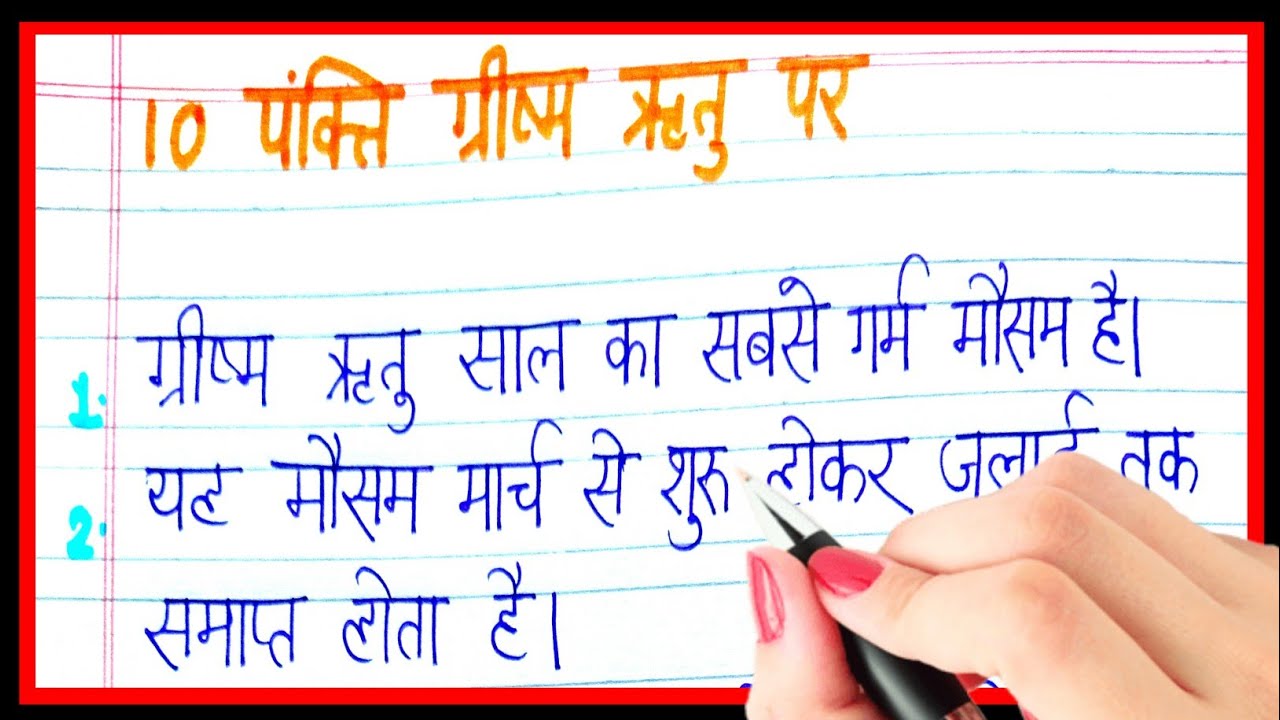 10 पंक्ति ग्रीष्म ऋतु पर
1. ग्रीष्म ऋतु साल का सबसे गर्म मौसम है।
2. यह मौसम मार्च से शुरू होकर जुलाई तक
समाप्त होता है।